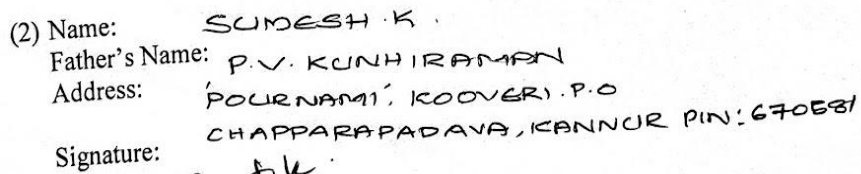 (2) Name: SUMESH.K.
Father's Name: P.V. KUNHIRAMAN
Address: 'POURNAMI', KOOVERI.P.O
CHAPPARAPADAVA, KANNUR PIN: 670581
Signature: